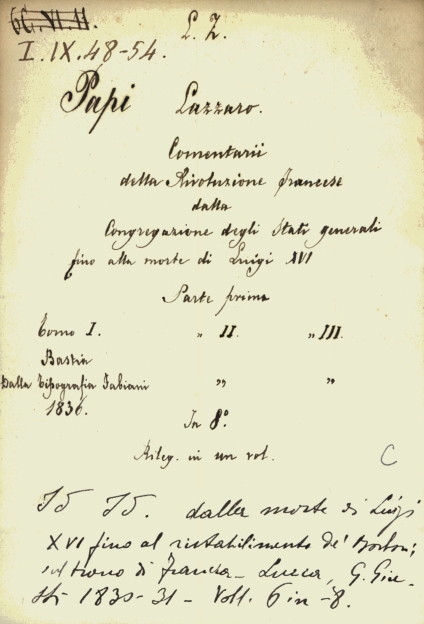 6C.VI.11.
L. Z.
I.IX.48-54.
Papi Lazzaro.
Comentarii
della Rivoluzione francese
dalla
Congregazione degli Stati generali
fino alla morte di Luigi XVI
Parte prima
Tomo I. " II. " III.
Bastia
Dalla Tipografia Fabiani " "
1836.
In 8°
Rileg. in un vol.
C
Id Id. dalla morte di Luigi
XVI fino al ristabilimento de' Borboni
sul trono di Francia - Lucca, G. Giu-
sti 1830-31 - Voll. 6 in-8.